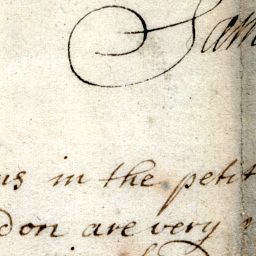 Sam
ns in the petit
don are very